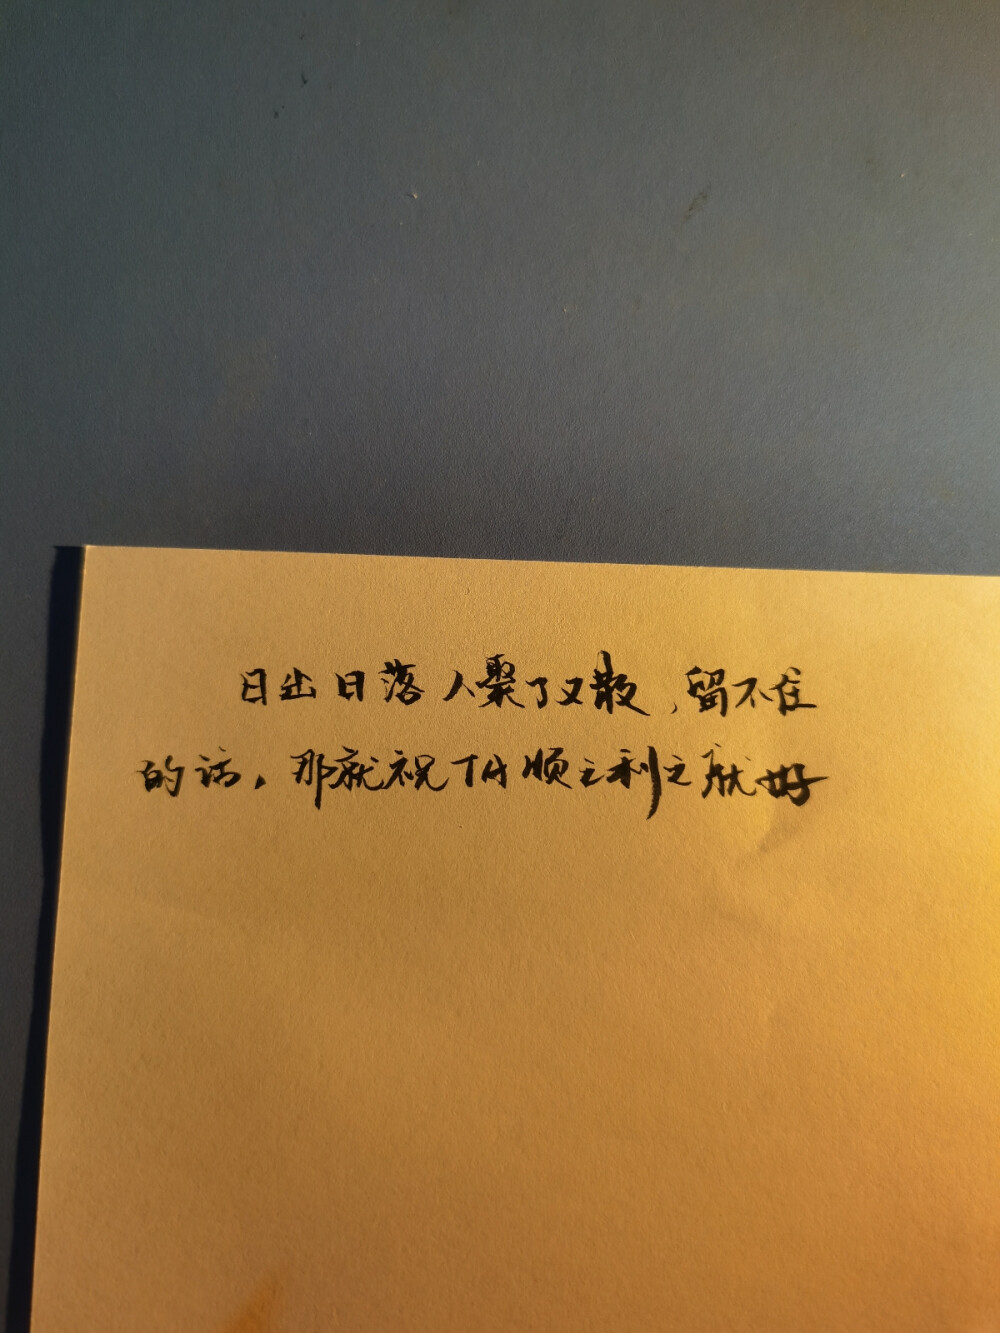 日出日落人聚了又散，留不住
的话，那就祝TA顺之利之就好